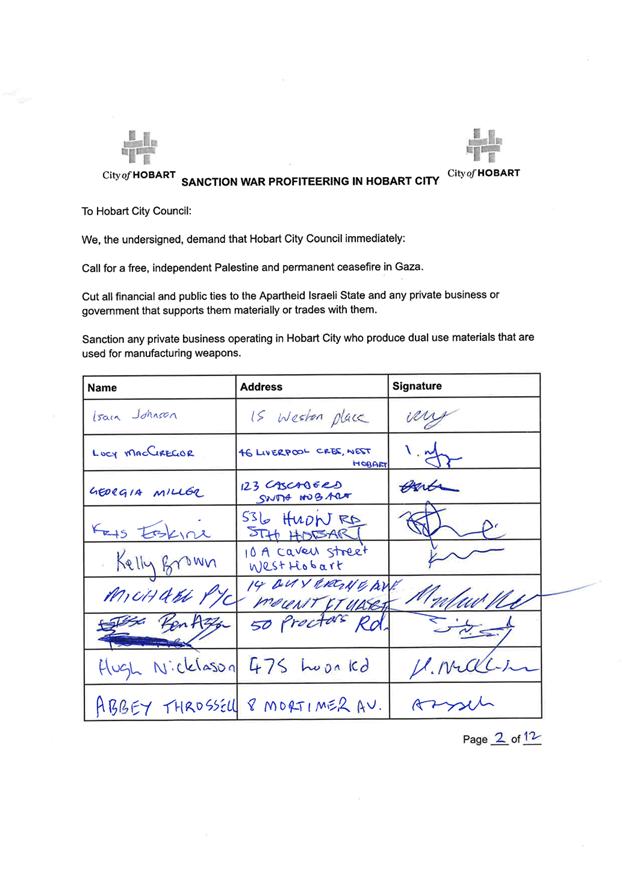 City of HOBART
City of HOBART
SANCTION WAR PROFITEERING IN HOBART CITY
To Hobart City Council:
We, the undersigned, demand that Hobart City Council immediately:
Call for a free, independent Palestine and permanent ceasefire in Gaza.
Cut all financial and public ties to the Apartheid Israeli State and any private business or
government that supports them materially or trades with them.
Sanction any private business operating in Hobart City who produce dual use materials that are
used for manufacturing weapons.
Name Address Signature
Johnson 15 Weston place
LUCY MACGREGOR 46 LIVERPOOL CRES, WEST
HOBART
GEORGIA MILLER 123 
HOBART
Kris Erskine 536 HUON RD
STH HOBART
Kelly Brown 10 A Cavell Street
West Hobart
MICHAEL 14 AVE
MOUNT STUART
Ben 50 Proctors Rd.
Hugh Nicklason 475 Huon Rd H. Nicklason
ABBEY THROSSELL 8 MORTIMER AV.
Page 2 of 12